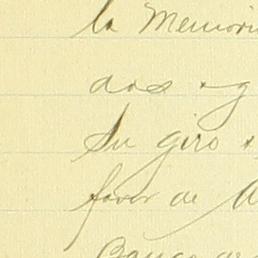 la Memori
dos y
Su giro
favor de
Banco de